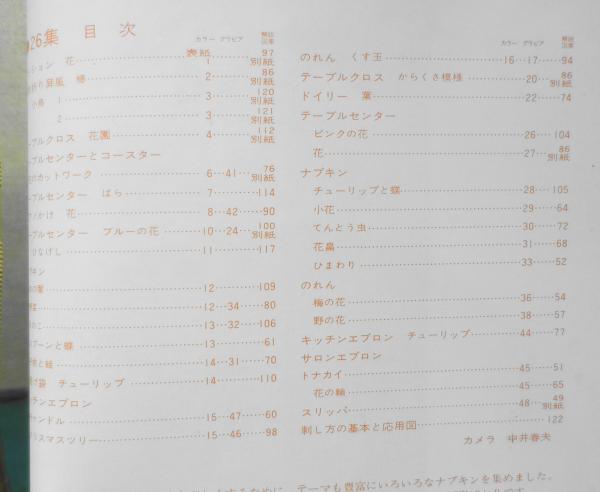 26集 目次
カラー グラビア 解説図案
ション 花 表紙 1 97 別紙
折り屏風 2 86 別紙
小鳥 1 3 120 別紙
2 3 121 別紙
ーブルクロス 花園 4 112 別紙
ーブルセンターとコースター
カットワーク 6…41 76 別紙
ーブルセンター ばら 7 114
かけ 花 8…42 90
ーブルセンター ブルーの花 10…24 100 別紙
ひなげし 11 117
キン
12 109
12…34 80
13…32 106
プーンと蝶 13 61
14…31 70
袋 チューリップ 14 110
チンエプロン
ャンドル 15…47 60
リスマスツリー 15…46 98
カラー グラビア 解説図案
のれん くす玉 16…17 94
テーブルクロス からくさ模様 20 86 別紙
ドイリー 葉 22 74
テーブルセンター
ピンクの花 26 104
花 27 86 別紙
ナプキン
チューリップと蝶 28 105
小花 29 64
てんとう虫 30 72
花畠 31 68
ひまわり 33 52
のれん
梅の花 36 54
野の花 38 57
キッチンエプロン チューリップ 44 77
サロンエプロン
トナカイ 45 51
花の輪 45 65
スリッパ 48 49 別紙
刺し方の基本と応用図 122
カメラ 中井春夫
テーマも豊富にいろいろなナプキンを集めました。